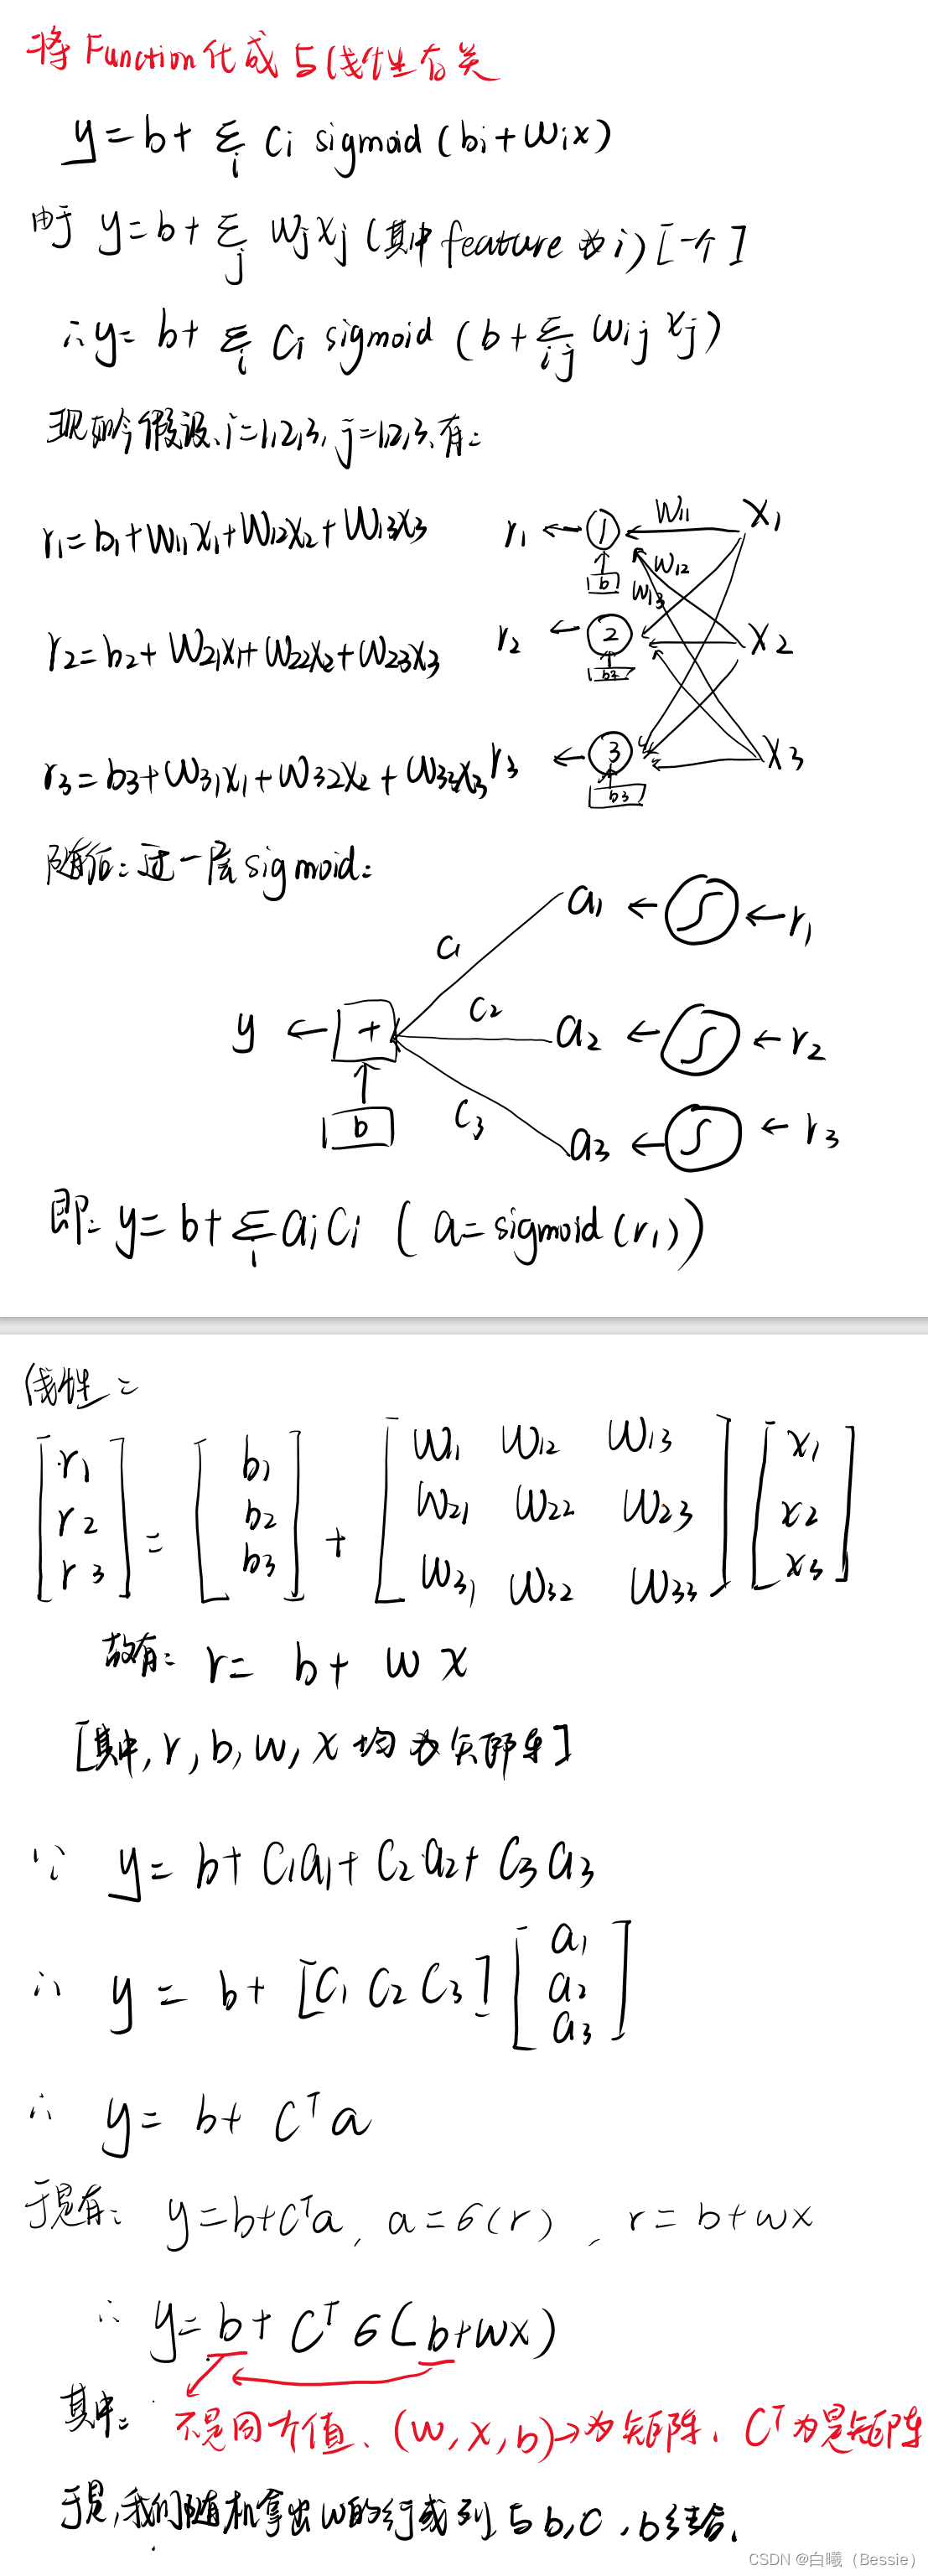 将 Function 化成与线性有关
y = b + Σi Ci sigmoid (bi + wix)
由于 y = b + Σj wjxj (其中 feature 为 i) [一个]
∴ y = b + Σi Ci sigmoid (b + Σij wij xj)
现如今假设、i=1,2,3, j=1,2,3、有:
r1 = b1 + w11x1 + w12x2 + w13x3
r1 ← 1 w11 x1
b w12
w13
r2 = b2 + w21x1 + w22x2 + w23x3
r2 ← 2 x2
b2
r3 = b3 + w31x1 + w32x2 + w33x3
r3 ← 3 x3
b3
随后: 过一层 sigmoid:
a1 ← S ← r1
C1
y ← + C2 a2 ← S ← r2
b C3 a3 ← S ← r3
即: y = b + Σi aiCi ( a = sigmoid (r1) )
线性:
[r1 r2 r3] = [b1 b2 b3] + [w11 w12 w13 w21 w22 w23 w31 w32 w33] [x1 x2 x3]
故有: r = b + w x
[其中, r, b, w, x 均为矩阵]
∵ y = b + C1a1 + C2a2 + C3a3
∴ y = b + [C1 C2 C3] [a1 a2 a3]
∴ y = b + C^T a
于是有: y = b + C^T a, a = σ(r), r = b + wx
∴ y = b + C^T σ(b + wx)
其中: 不是同一值、(w, x, b) → 为矩阵、C^T 为是矩阵
于是, 我们随机拿出 w 的行或列与 b, c, b 结合.
CSDN @白曦（Bessie）